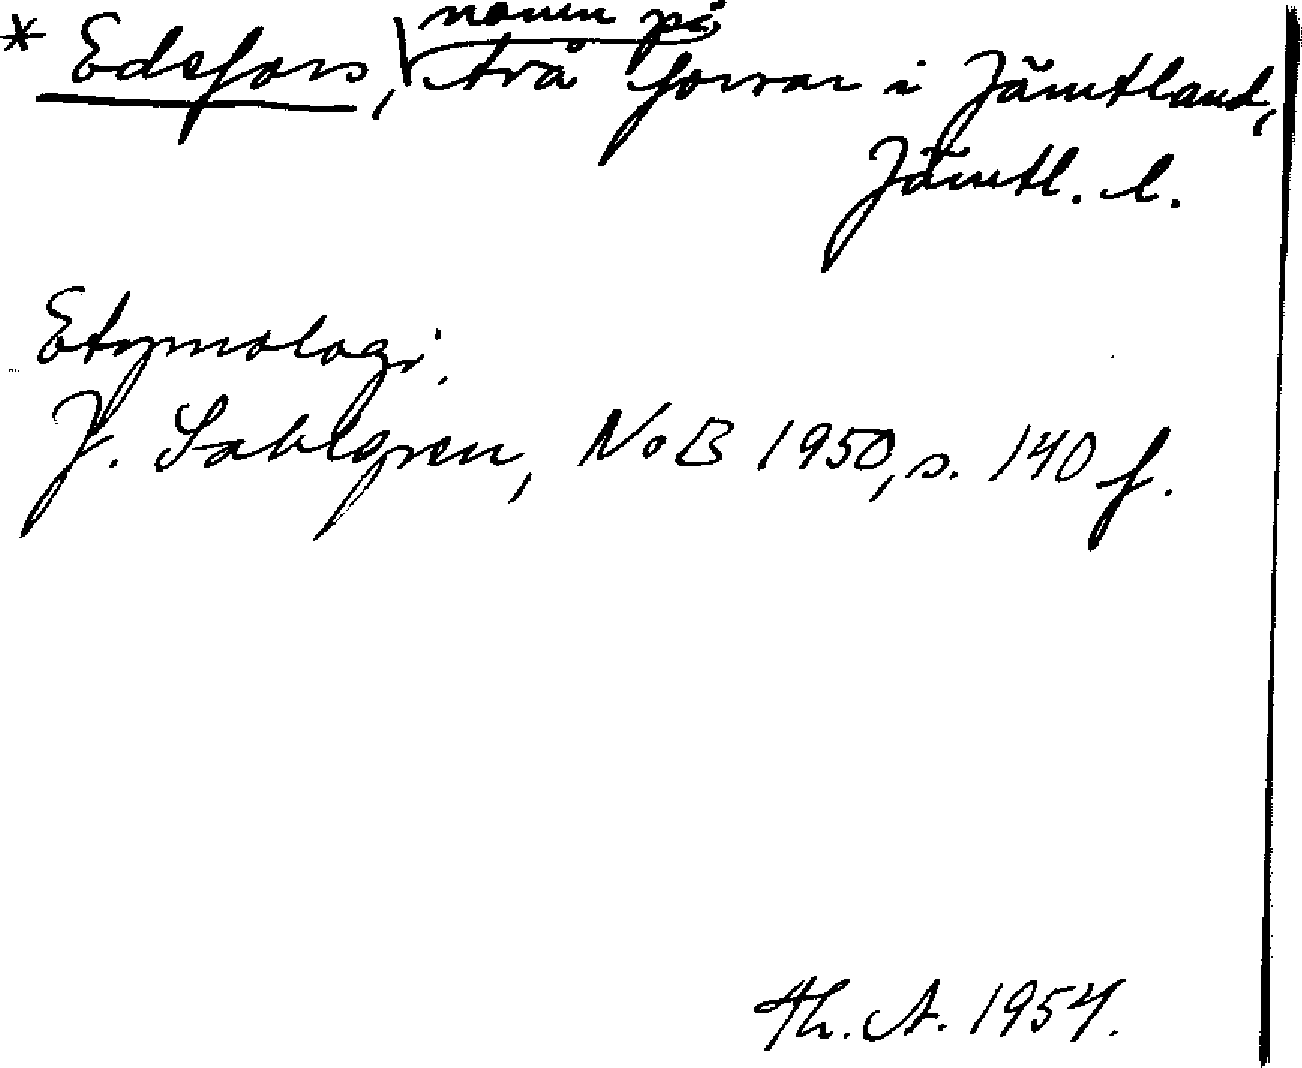 * Edsfors, namn på två forsar i Jämtland,
Jämtl. l.
Etymologi.
J. Sahlgren, NoB 1950, s. 140 f.
Th. A. 1954.